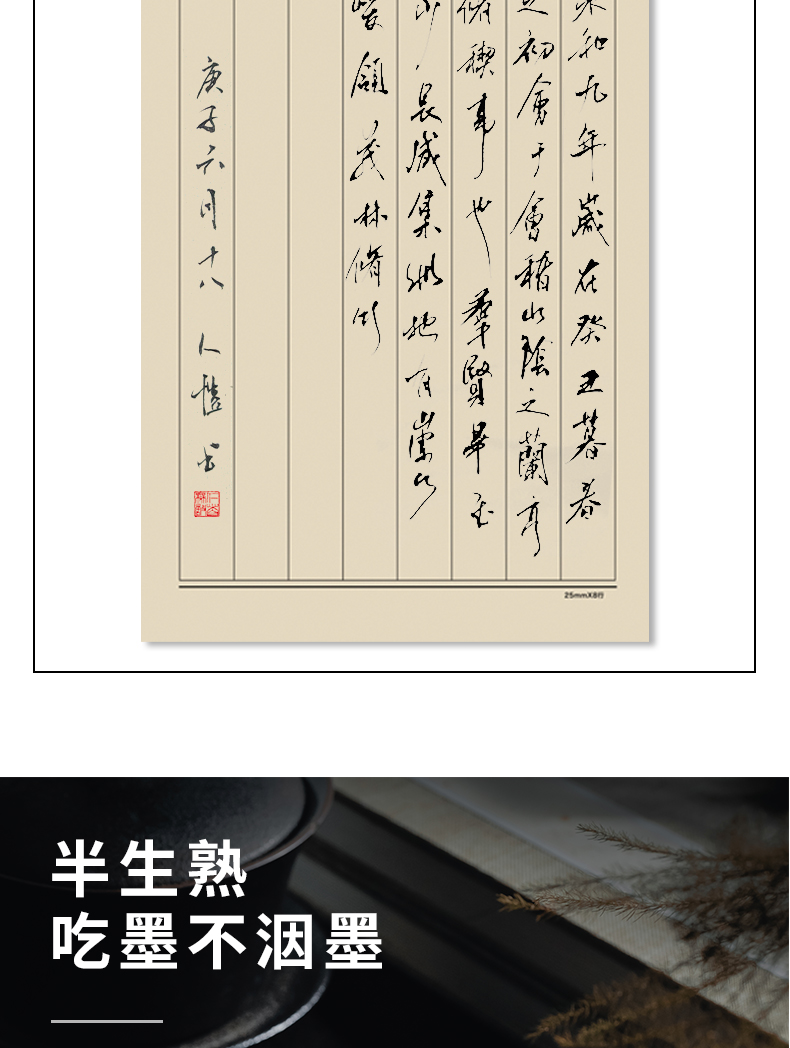 和九年歲在癸丑暮春
之初會于會稽山陰之蘭亭
脩禊事也羣賢畢至
少長咸集此地有崇山
峻領茂林脩竹
庚子六月十八
25mmX8行
半生熟
吃墨不洇墨